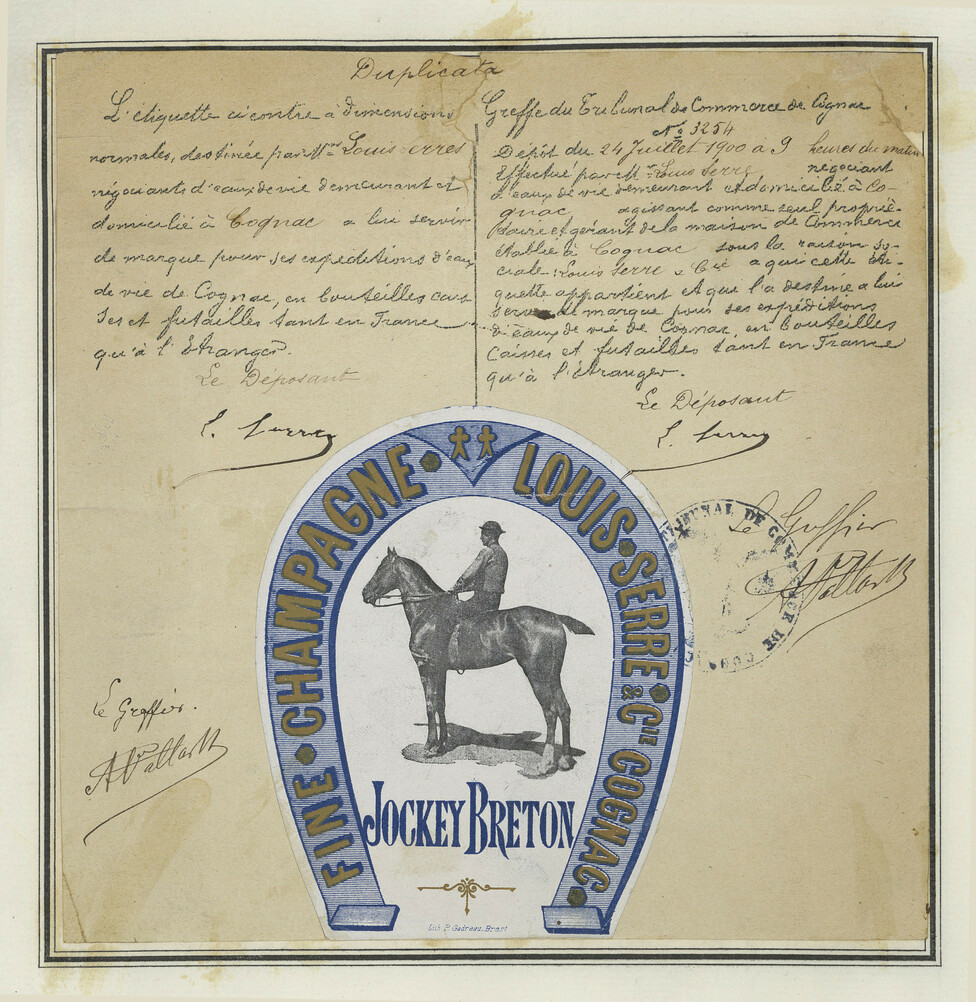 Duplicata
L'étiquette ci contre à dimensions
normales, destinée par Mr Louis Serres
négociant d'eaux de vie demeurant et
domicilié à Cognac a lui servir
de marque pour ses expéditions d'eaux
de vie de Cognac, en bouteilles cais
ses et futailles tant en France
qu'à l'Etranger.
Le Déposant
L. Serre
Le Greffier.
Greffe du Tribunal de Commerce de Cognac
No 3254
Dépôt du 24 Juillet 1900 à 9 heures du matin
Effectué par Mr Louis Serre négociant
d'eaux de vie demeurant et domicilié à Co-
gnac agissant comme seul proprié-
taire et gérant de la maison de Commerce
établie à Cognac sous la raison so-
ciale: Louis Serre & Cie a qui cette éti-
quette appartient et qui l'a destinée a lui
servir de marque pour ses expéditions
d'eaux de vie de Cognac, en bouteilles
Caisses et futailles tant en France
qu'à l'étranger.
Le Déposant
L. Serre
Le Greffier
TRIBUNAL DE COMMERCE DE COGNAC
FINE • CHAMPAGNE • LOUIS • SERRE • & CIE COGNAC •
JOCKEY BRETON
Lith. P. Gadreau. Brest